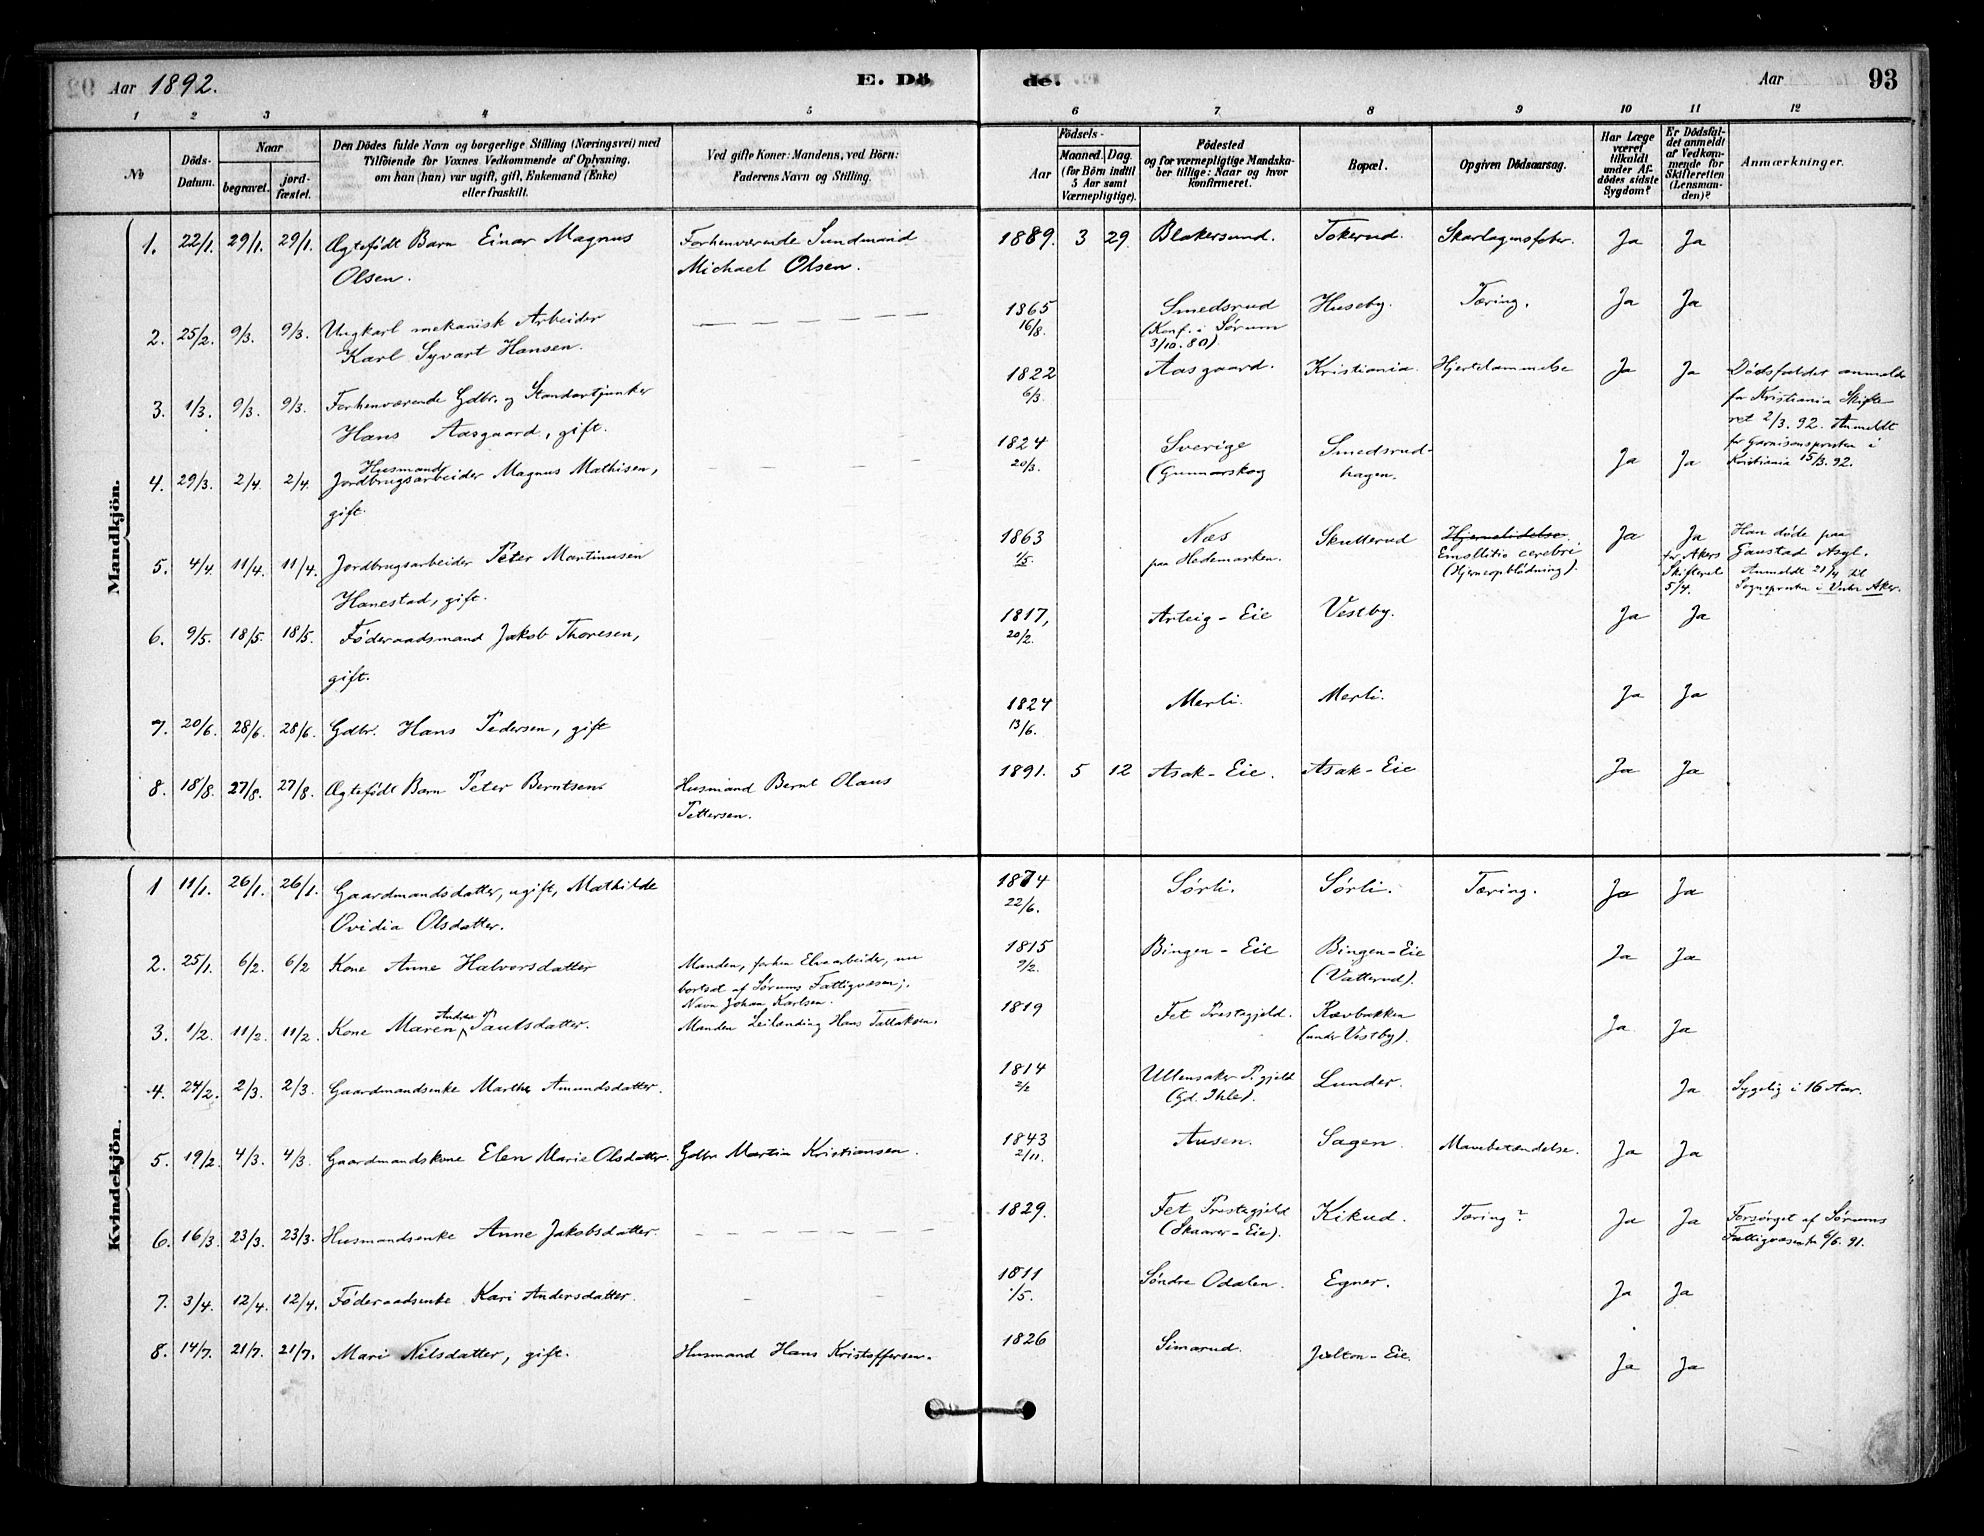 Aar 1892.
E. Dö
de.
Aar
93
1 2 3 4 5 6 7 8 9 10 11 12
No
Döds-
Datum.
Naar
begravet.
jord-
fæstet.
Den Dödes fulde Navn og borgerlige Stilling (Næringsvei) med
Tilföiende for Voxnes Vedkommende af Oplysning,
om han (hun) var ugift, gift, Enkemand (Enke)
eller fraskilt.
Ved gifte Koner: Mandens, ved Börn:
Faderens Navn og Stilling.
Födsels-
Aar
Maaned. Dag.
(for Börn indtil
5 Aar samt
Værnepligtige).
Födested
og for værnepligtige Mandska-
ber tillige: Naar og hvor
konfirmeret.
Bopæl.
Opgiven Dödsaarsag.
Har Læge
været
tilkaldt
under Af-
dödes sidste
Sygdom?
Er Dödsfal-
det anmeldt
af Vedkom-
mende for
Skifteretten
(Lensman-
den)?
Anmærkninger.
Mandkjön.
1. 22/1. 29/1. 29/1. Ægtefödt Barn Einar Magnus
Olsen.
Forhenværende Sundmand
Michael Olsen.
1889. 3 29 Blakersund. Tokerud. Skarlagensfeber. Ja Ja
2. 25/2. 9/3. 9/3. Ungkarl mekanisk Arbeider
Karl Syvart Hansen.
1865
16/8.
Smedsrud
(Konf. i Sørum
3/10. 80).
Huseby. Tæring. Ja Ja
3. 1/3. 9/3. 9/3. Forhenværende Gdbr. og Standartjunker
Hans Aasgaard, gift.
1822
6/3.
Aasgaard. Kristiania. Hjertelammelse Ja Ja
Dödsfaldet anmeldt
for Kristiania Skifte
ret 2/3. 92. Anmeldt
for Garnisonspresten i
Kristiania 15/3. 92.
4. 29/3. 2/4. 2/4. Husmand
Jordbrugsarbeider Magnus Mathisen,
gift.
1824
20/3.
Sverige
(Gunnarskog
Smedsrud-
hagen.
Ja Ja
5. 4/4. 11/4. 11/4. Jordbrugsarbeider Peter Martinusen
Hanestad, gift.
1863
1/5
Næs
paa Hedemarken.
Skutterud
Hjernelidelse
Emollitio cerebri
(Hjerneopblødning).
Ja Ja
for Akers
Skifteret
5/4.
Han døde paa
Gaustad Asyl.
Anmeldt 21/4 til
Sognepresten i Vestre Aker.
6. 9/5. 18/5. 18/5. Föderaadsmand Jakob Thoresen,
gift.
1817,
20/2.
Arteig-Eie Vestby. Ja Ja
7. 20/6. 28/6. 28/6. Gdbr. Hans Pedersen, gift
1824
13/6.
Merli. Merli. Ja Ja
8. 18/8. 27/8. 27/8. Ægtefödt Barn Peter Berntsen.
Husmand Bernt Olaus
Pettersen.
1891. 5 12 Asak-Eie. Asak-Eie Ja Ja
Kvindekjön.
1 11/1. 26/1. 26/1. Gaardmandsdatter, ugift, Mathilde
Ovidia Olsdatter.
1874
22/6.
Sørli. Sørli. Tæring. Ja Ja
2. 25/1. 6/2. 6/2 Kone Anne Halvorsdatter
Manden, forhen Elvearbeider, nu
bortsat af Sørums Fattigvæsen;
Navn Johan Karlsen.
1815
9/2.
Bingen-Eie Bingen-Eie
(Vatterud).
Ja Ja
3. 1/2. 11/2. 11/2. Kone Maren Andrea Paulsdatter.
Manden Leilænding Hans Tallaksen.
1819 Fet Prestegjeld. Rævbakken
(under Vestby).
Ja Ja
4. 24/2. 2/3. 2/3. Gaardmandsenke Marthe Amundsdatter.
1814
2/2
Ullensaker P.gjeld
(Gd. Ihle).
Lunder. Ja Sygelig i 16 Aar.
5. 19/2. 4/3. 4/3. Gaardmandskone Elen Marie Olsdatter. Gdbr. Martin Kristiansen.
1843
2/11.
Ausen. Sagen. Mavebetændelse. Ja Ja
6. 16/3. 23/3. 23/3. Husmandsenke Anne Jakobsdatter.
1829. Fet Prestegjeld
(Skaarer-Eie).
Kikud. Tæring? Ja Ja
Forsørget af Sørums
Fattigvæsen 6/6. 91.
7. 3/4. 12/4. 12/4. Föderaadsenke Kari Andersdatter.
1811
1/5.
Søndre Odalen. Egner. Ja Ja
8. 14/7. 21/7. 21/7. Mari Nilsdatter, gift.
Husmand Hans Kristoffersen.
1826 Simarud. Jølton-Eie. Ja Ja